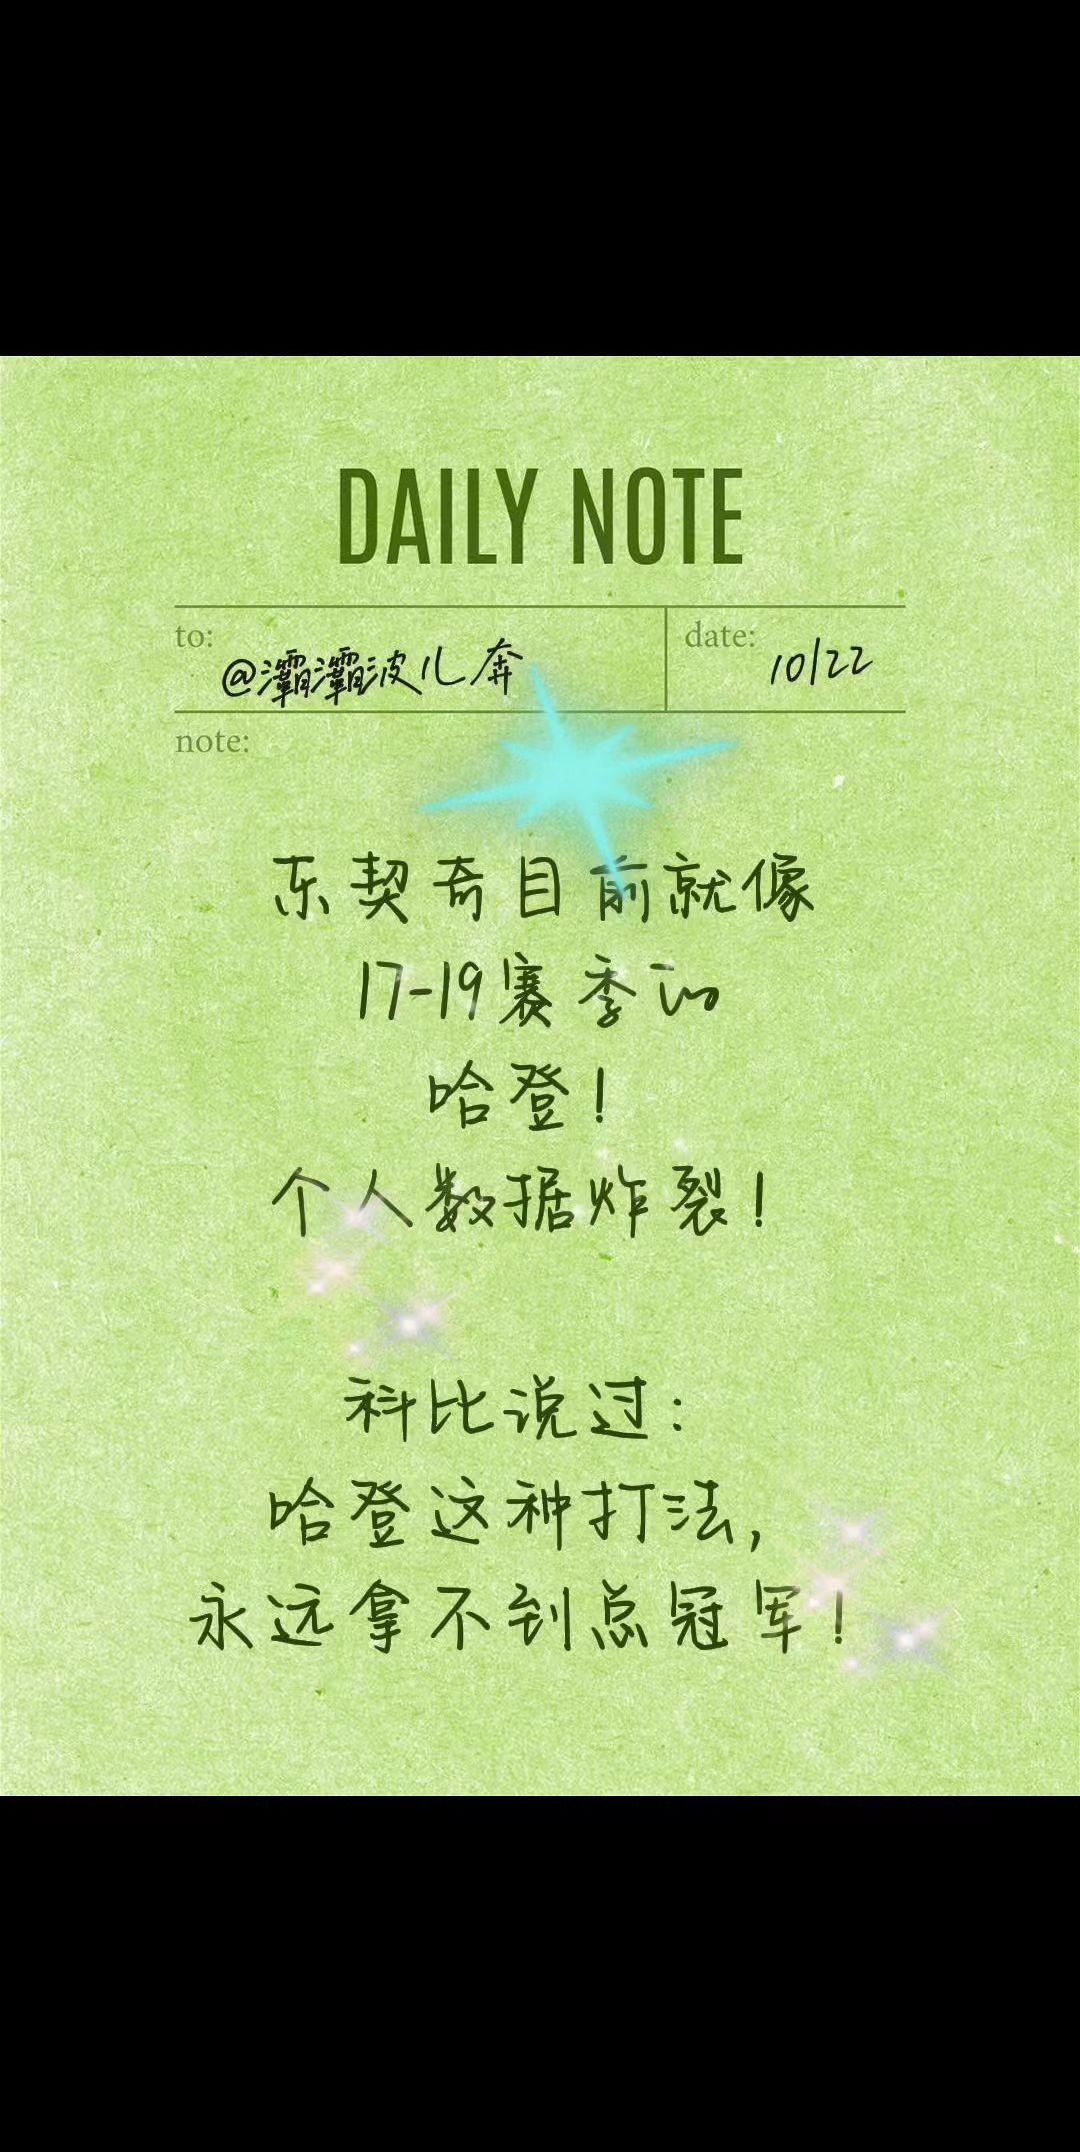 DAILY NOTE
to:
@灞灞波儿奔
date:
10/22
note:
东契奇目前就像
17-19赛季的
哈登！
个人数据炸裂！
科比说过：
哈登这种打法，
永远拿不到总冠军！